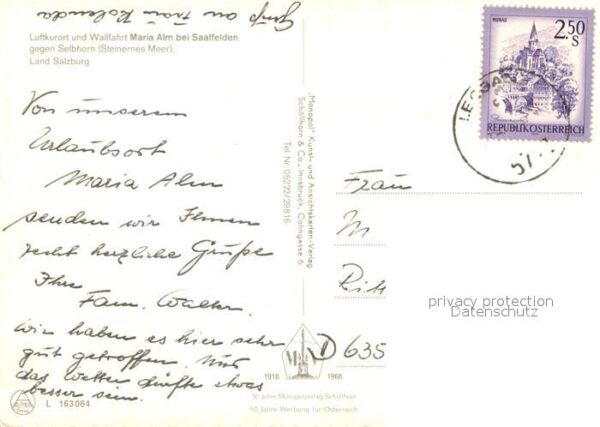 Gruß an Frau Kolenda
Luftkurort und Wallfahrt Maria Alm bei Saalfelden
gegen Selbhorn (Steinernes Meer),
Land Salzburg
Von unserem
Urlaubsort
Maria Alm
senden wir Ihnen
recht herzliche Grüße
Ihre
Fam. Walter.
Wir haben es hier sehr
gut getroffen. Nur
das Wetter dürfte etwas
besser sein.
L 163064
„Monopol" Kunst- und Ansichtskarten-Verlag
Schöllhorn & Co., Innsbruck, Colingasse 6
Tel Nr. 05222/29816
1918 1968
50 Jahre Monopolverlag Schöllhorn
50 Jahre Werbung für Österreich
MURAU
2.50
S
REPUBLIK ÖSTERREICH
57
Frau
M
Ritt
D 635
privacy protection
Datenschutz